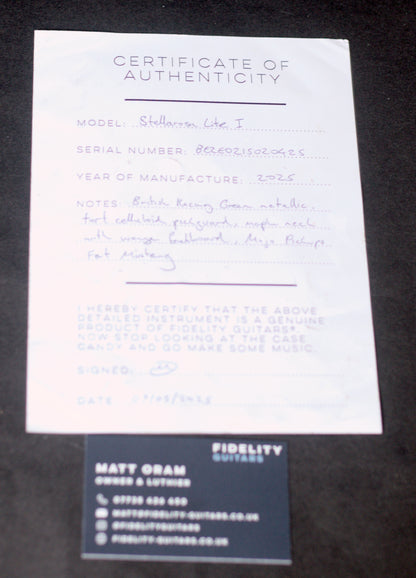 CERTIFICATE OF
AUTHENTICITY
MODEL: Stellarosa Lite I
SERIAL NUMBER:
YEAR OF MANUFACTURE: 2025
NOTES: British Racing Green metallic,
tort celluloid pickguard, maple neck
with wenge fretboard, Mojo Pickups
Fat Mustang
I HEREBY CERTIFY THAT THE ABOVE
DETAILED INSTRUMENT IS A GENUINE
PRODUCT OF FIDELITY GUITARS®.
NOW STOP LOOKING AT THE CASE
CANDY AND GO MAKE SOME MUSIC.
SIGNED:
DATE
FIDELITY
GUITARS
MATT ORAM
OWNER & LUTHIER
MATT@FIDELITY-GUITARS.CO.UK
@FIDELITYGUITARS
FIDELITY-GUITARS.CO.UK